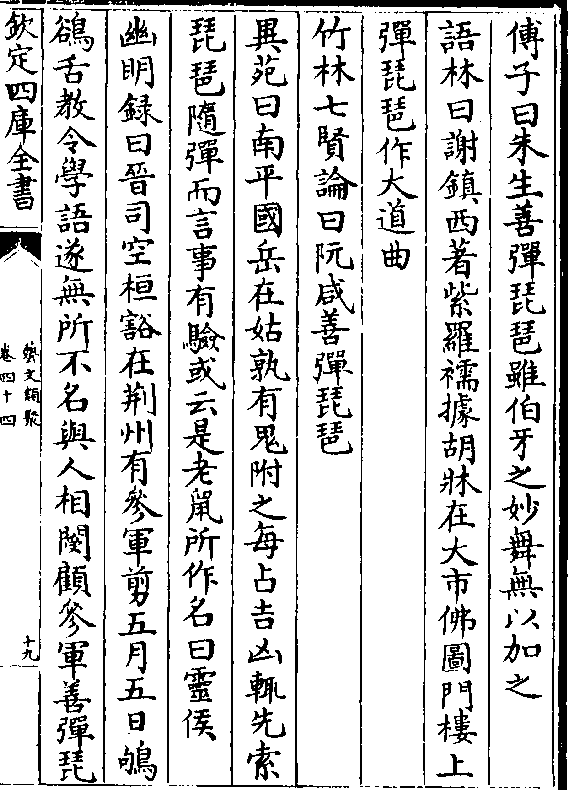 傅子曰朱生善彈琵琶雖伯牙之妙舞無以加之
語林曰謝鎮西著紫羅襦據胡牀在大市佛圖門樓上
彈琵琶作大道曲
竹林七賢論曰阮咸善彈琵琶
異苑曰南平國岳在姑孰有鬼附之每占吉凶輒先索
琵琶隨彈而言事有驗或云是老鼠所作名曰靈侯
幽明録曰晉司空桓豁在荆州有參軍剪五月五日鴝
鵒舌教令學語遂無所不名與人相顧參軍善彈琵
欽定四庫全書
藝文類聚
卷四十四
十九